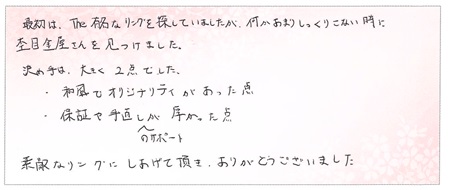 最初は、The 有名なリングを探していましたが、何かあまりしっくりこない時に
杢目金屋さんを見つけました。
決め手は、大きく2点でした。
・和風でオリジナリティがあった点
・保証や手直しが厚かった点
のサポート
素敵なリングにしあげて頂き、ありがとうございました